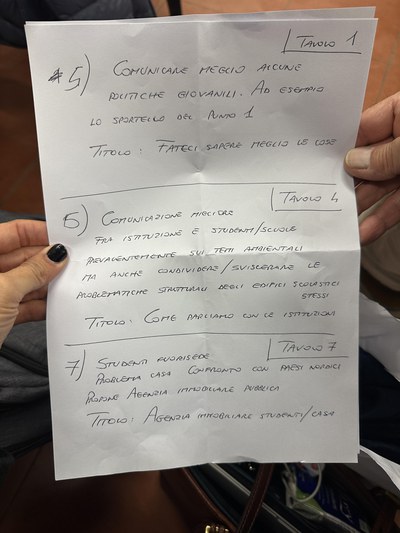 TAVOLO 1
5) COMUNICARE MEGLIO ALCUNE
POLITICHE GIOVANILI. AD ESEMPIO
LO SPORTELLO DEL PUNTO 1
TITOLO: FATECI SAPERE MEGLIO LE COSE
TAVOLO 4
6) COMUNICAZIONE MIGLIORE
FRA ISTITUZIONE E STUDENTI/SCUOLE
PREVALENTEMENTE SUI TEMI AMBIENTALI
MA ANCHE CONDIVIDERE/SVISCERARE LE
PROBLEMATICHE STRUTTURALI DEGLI EDIFICI SCOLASTICI
STESSI
TITOLO: COME PARLIAMO CON LE ISTITUZIONI
TAVOLO 7
7) STUDENTI FUORISEDE
PROBLEMA CASA CONFRONTO CON PAESI NORDICI
PROPONE AGENZIA IMMOBILIARE PUBBLICA
TITOLO: AGENZIA IMMOBILIARE STUDENTI/CASA